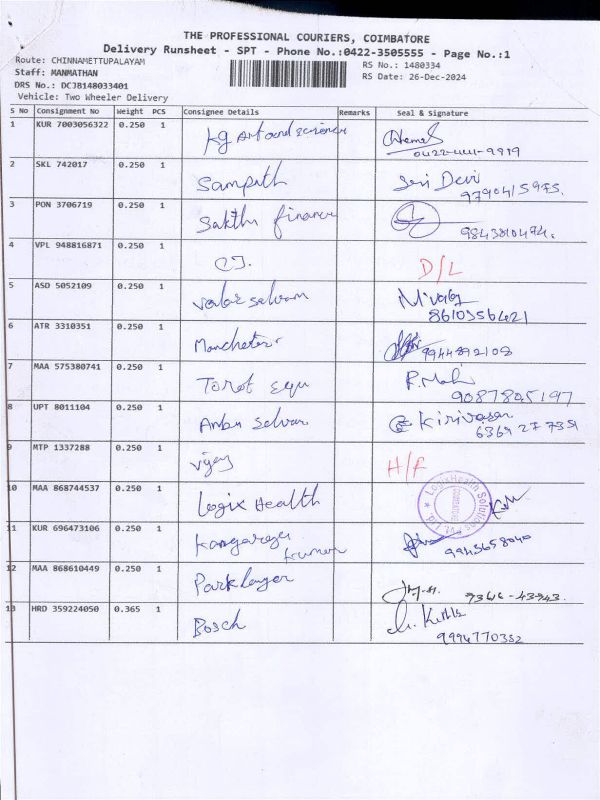 THE PROFESSIONAL COURIERS, COIMBATORE
Delivery Runsheet - SPT - Phone No.:0422-3505555 - Page No.:1
Route: CHINNAMETTUPALAYAM
RS No.: 1480334
Staff: MANMATHAN
RS Date: 26-Dec-2024
DRS No.: DCJB148033401
Vehicle: Two Wheeler Delivery
S No Consignment No Weight PCS Consignee Details Remarks Seal & Signature
1 KUR 7003056322 0.250 1 kg Art and science
2 SKL 742017 0.250 1 Sampath Sri Devi
3 PON 3706719 0.250 1 Sakthi finance
4 VPL 948816871 0.250 1 CJ. D/L
5 ASD 5052109 0.250 1 selvam
8610356421
6 ATR 3310351 0.250 1 Manchester 9944892108
7 MAA 575380741 0.250 1 Equ
9087805197
8 UPT 8011104 0.250 1 Anbu Selvan
9 MTP 1337288 0.250 1 vijay H/F
10 MAA 868744537 0.250 1 Logix Health LogixHealth Solutions Pvt. Ltd. COIMBATORE
11 KUR 696473106 0.250 1 Kangaraja
kumar 9943658040
12 MAA 868610449 0.250 1
13 HRD 359224050 0.365 1 Bosch
9994770332